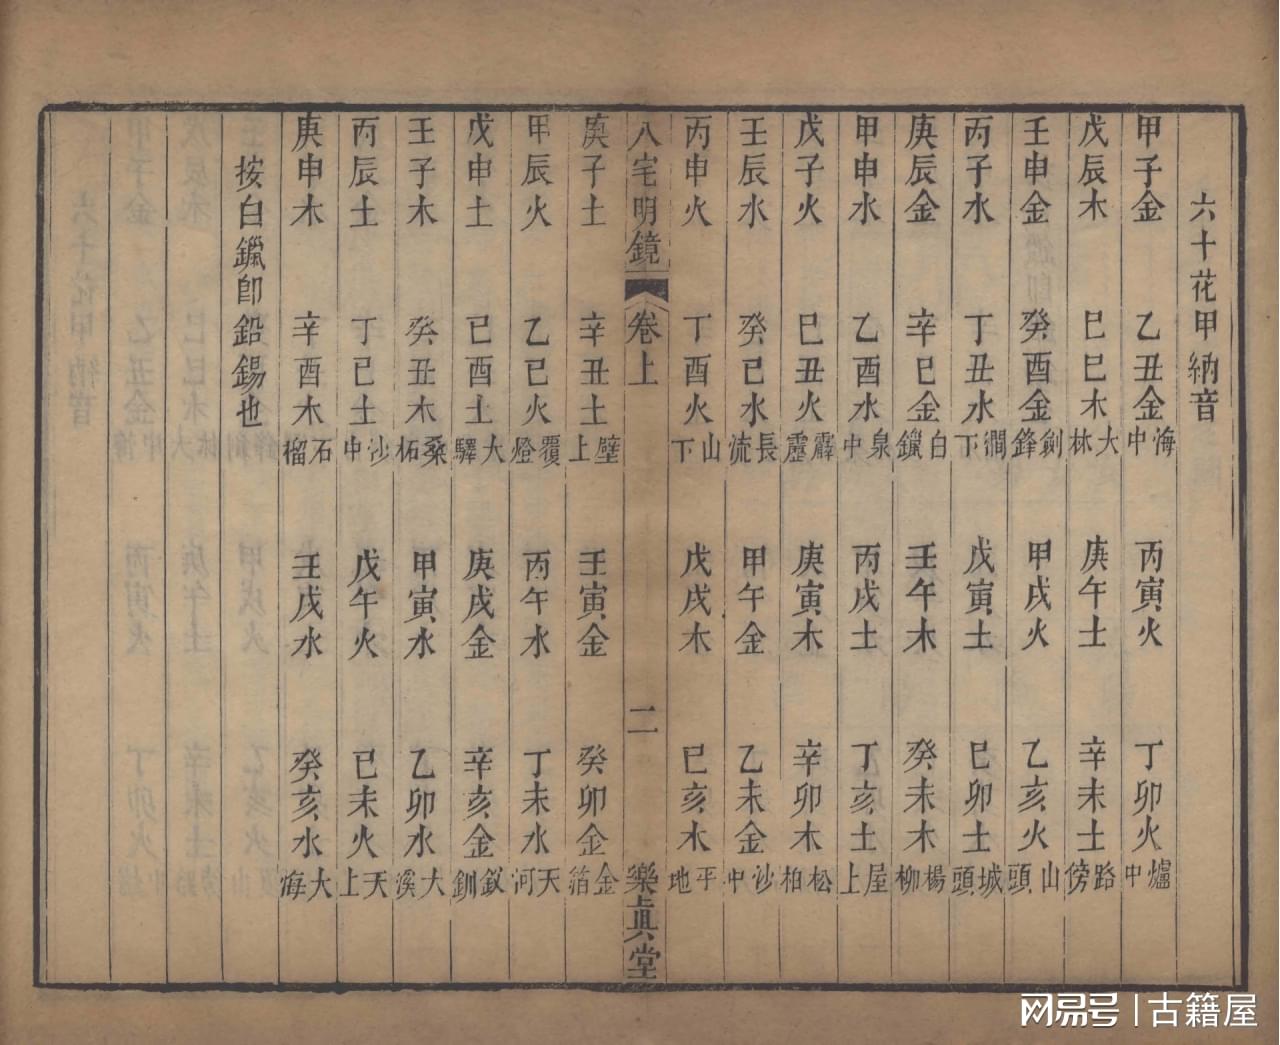 六十花甲納音
甲子金 乙丑金 海中 丙寅火 丁卯火 爐中
戊辰木 巳巳木 大林 庚午土 辛未土 路傍
壬申金 癸酉金 劍鋒 甲戌火 乙亥火 山頭
丙子水 丁丑水 澗下 戊寅土 巳卯土 城頭
庚辰金 辛巳金 白鑞 壬午木 癸未木 楊柳
甲申水 乙酉水 泉中 丙戌土 丁亥土 屋上
戊子火 巳丑火 霹靂 庚寅木 辛卯木 松柏
壬辰水 癸巳水 長流 甲午金 乙未金 沙中
丙申火 丁酉火 山下 戊戌木 巳亥木 平地
八宅明鏡 卷上 二 樂真堂
庚子土 辛丑土 壁上 壬寅金 癸卯金 金箔
甲辰火 乙巳火 覆燈 丙午水 丁未水 天河
戊申土 巳酉土 大驛 庚戌金 辛亥金 釵釧
壬子木 癸丑木 桑柘 甲寅水 乙卯水 大溪
丙辰土 丁巳土 沙中 戊午火 巳未火 天上
庚申木 辛酉木 石榴 壬戌水 癸亥水 大海
按白鑞卽鉛錫也
网易号 | 古籍屋